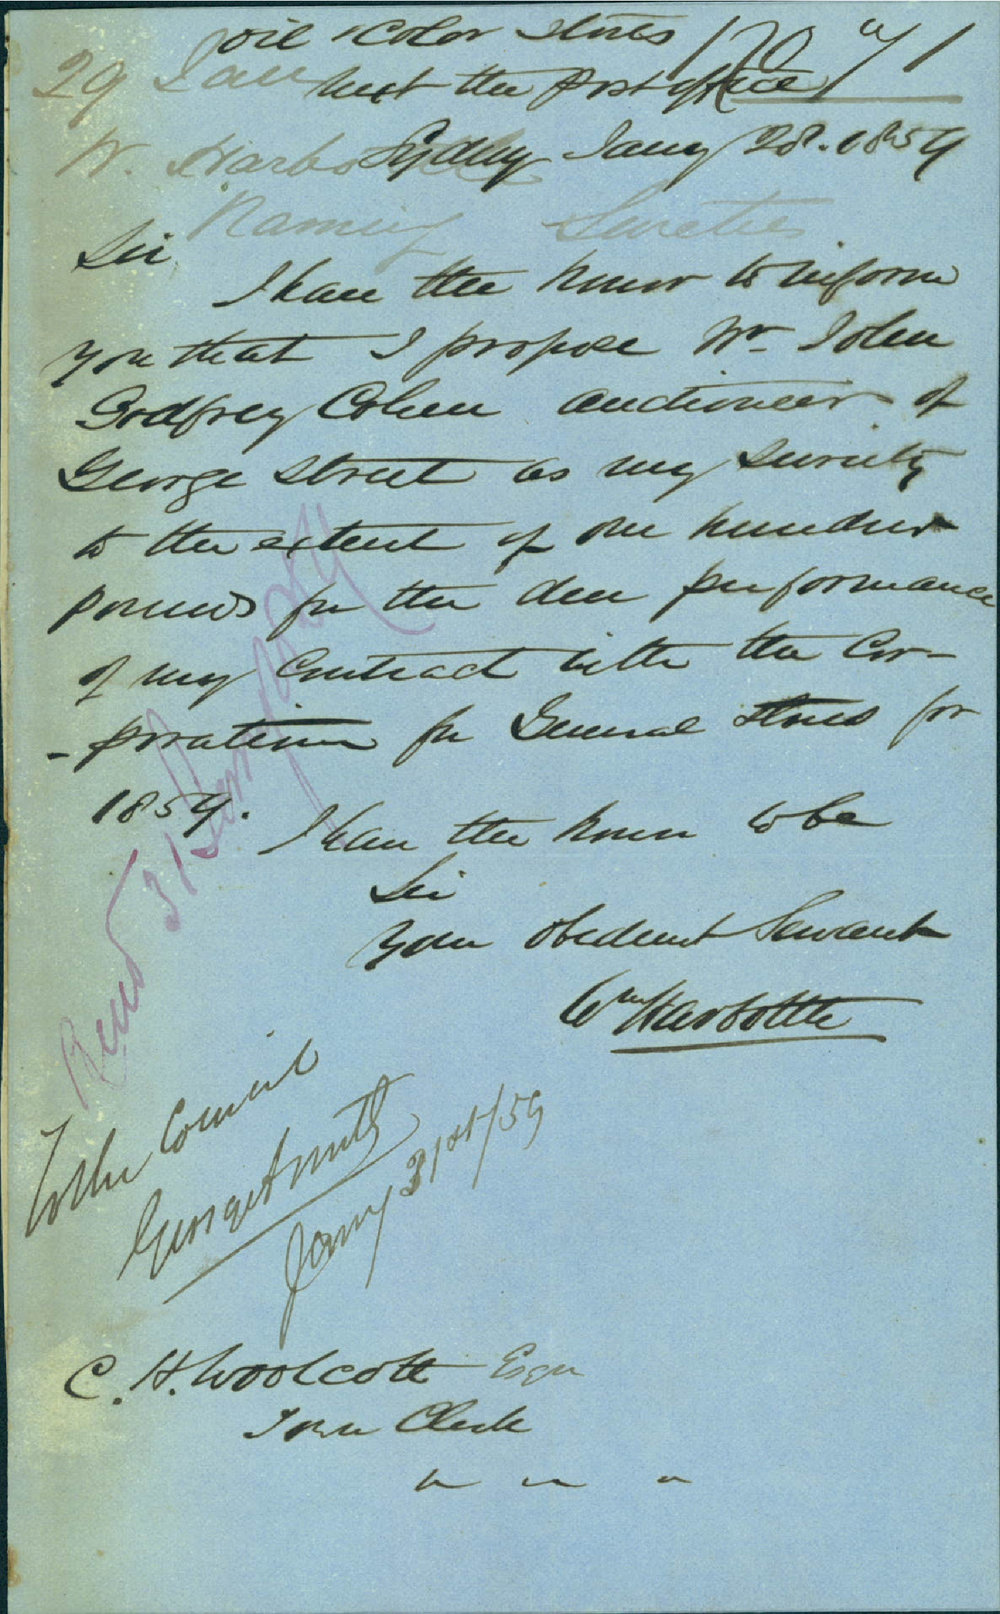 oil & Color Stores
next the post office
29 Jan
W. Harbottle
Naming Sureties
Sydney Jany 28. 1859
Sir
I have the honor to inform
you that I propose Mr John
Godfrey Cohen auctioneer of
George Street as my Surity
to the extent of one hundred
pounds for the due performance
of my Contract with the Cor-
-poration for General Stores for
1859.
I have the honor to be
Sir
Your obedient Servant
Wm Harbottle
To the Council
George Smith
Jany 31st/59
C. H. Woolcott Esqr
Town Clerk